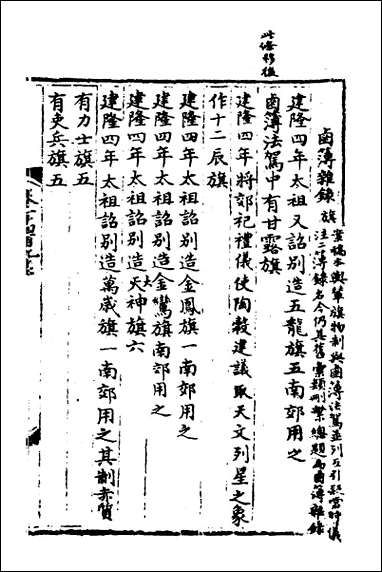 此條移後
鹵簿雜錄 旗 案稿本輿輦旗物制與鹵簿法駕並列互引
注二 錄名今仍其舊彙類刪繁總題爲鹵簿雜錄
建隆四年太祖又詔别造五龍旗五南郊用之
鹵簿法駕中有甘露旗
建隆四年將郊祀禮儀使陶穀建議取天文列星之象
作十二辰旗
建隆四年太祖詔别造金鳳旗一南郊用之
建隆四年太祖詔别造金鸞旗南郊用之
建隆四年太祖詔别造天神旗六
建隆四年太祖詔别造萬歲旗一南郊用之其制赤質
有力士旗五
有吏兵旗五